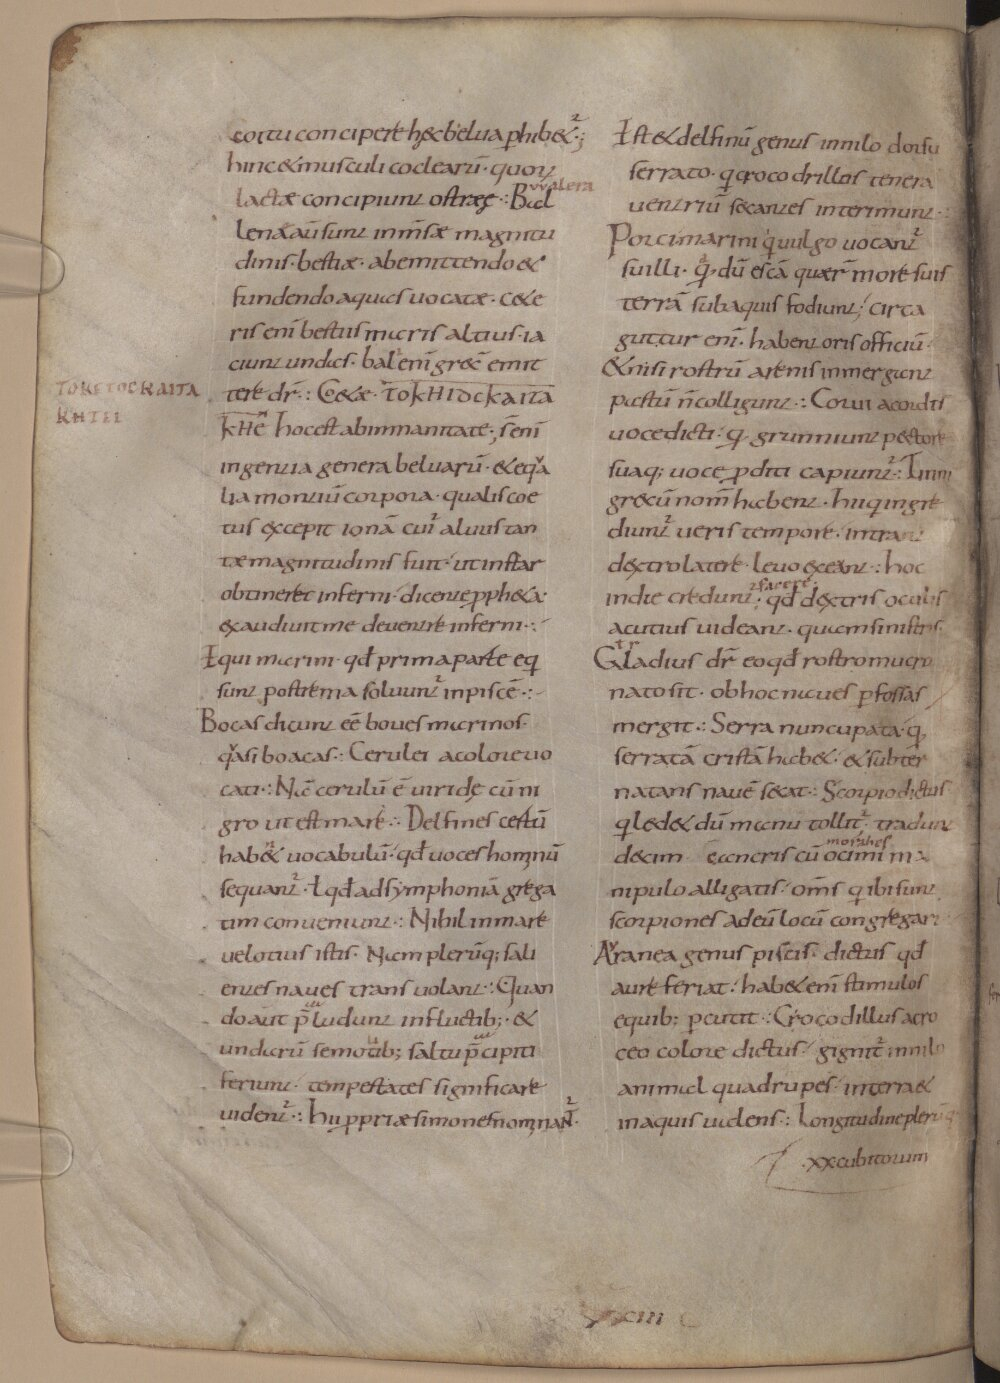 coitu concipere hęc belua phibet᷑·;
hinc & musculi coclearū· quorꝝ
lactæ concipiunt ostræę·: Bal
vvalera
lenæ aūt sunt inm̄sæ magnitu
dinis· bestiæ· ab emittendo &
fundendo aquas uocatæ· Cete
ris enī bestiis maris altius· ia
ciunt undas· bal enī grec̄ emit
tere dr̄·: Cetæ· ΤΟ ΚΗΤΟC ΚΑΙ ΤΑ
ΤΟΚΕΤΟC ΚΑΙ ΤΑ
ΚΗΤΕΙ
ΚΗΕ hoc est ab inmanitate·; s̄ enī
ingentia genera beluarū· & eq̊a
lia montiū corpora· qualis coe
tus excepit ionā cui᷑ aluus tan
tæ magnitudinis fuit· ut instar
obtineret inferni· dicente ppheta·
exaudiuit me de uentre inferni·:
Equi marini· qđ prima parte eq̇
sunt postrema soluunt᷑ in piscē·:
Bocas dicunt eē boues marinos·
q̊asi boacas· Cerulei a colore uo
cati·: Nā cerulū ē uiride cū ni
gro ut est mare·: Delfines certū
habent uocabulū· qđ uoces hominū
sequant᷑· ł qđ ad symphoniā grega
tim conueniunt·: Nihil in mare
uelotius istis· Nam plerūq; sali
entes naues trans uolant·: Quan
do aūt p̄ludunt in fluctib;· &
undarū se motib; saltu p̄cipiti
feriunt· tempestates significare
uident᷑·: hii pprie simones nominant᷑·
Est & delfinū genus in nilo dorsu
serrato· q̇ crocodrillos tenera
uentriū secantes interimunt·
Porci marini q̇ uulgo uocant᷑
suilli· q̄ dū escā quær̄ more suis
terrā sub aquis fodiunt; circa
guttur enī· habent oris officiū·
& nisi rostrū arenis inmergant
pastū ñ colligunt·: Corui a cordis
uoce dicti· q̇ grunniunt pectore
suaq; uoce pditi capiunt᷑·:
grecū nom̄ habent· hii q̇ ingre
diunt᷑ ueris tempore· intrant
dextro latere· leuo exeant·: hoc
inde credunt᷑ facere· qđ dextris oculis
acutius uideant· quam sinistris·
Gladius dr̄ eo qđ rostro mucro
nato sit· ob hoc naues pfossas
mergit·: Serra nuncupata· q̇
serratā cristā habet· & subter
natans nauē secat·: Scorpio dictus
q̇ ledet dū manu tollit᷑· tradunt
decim cancris cū ocimi ma
nipulo alligatis· oms̄ q̇ ibi sunt
scorpiones ad eū locū congregari
Aranea genus piscis· dictus qđ
aure feriat· habet enī stimulos
equib; pcutit·: Crocodillus a cro
ceo colore dictus· gignit᷑ in nilo
animal quadrupes· in terra &
in aquis ualens·: Longitudine pleruq;
·xx· cubitorum